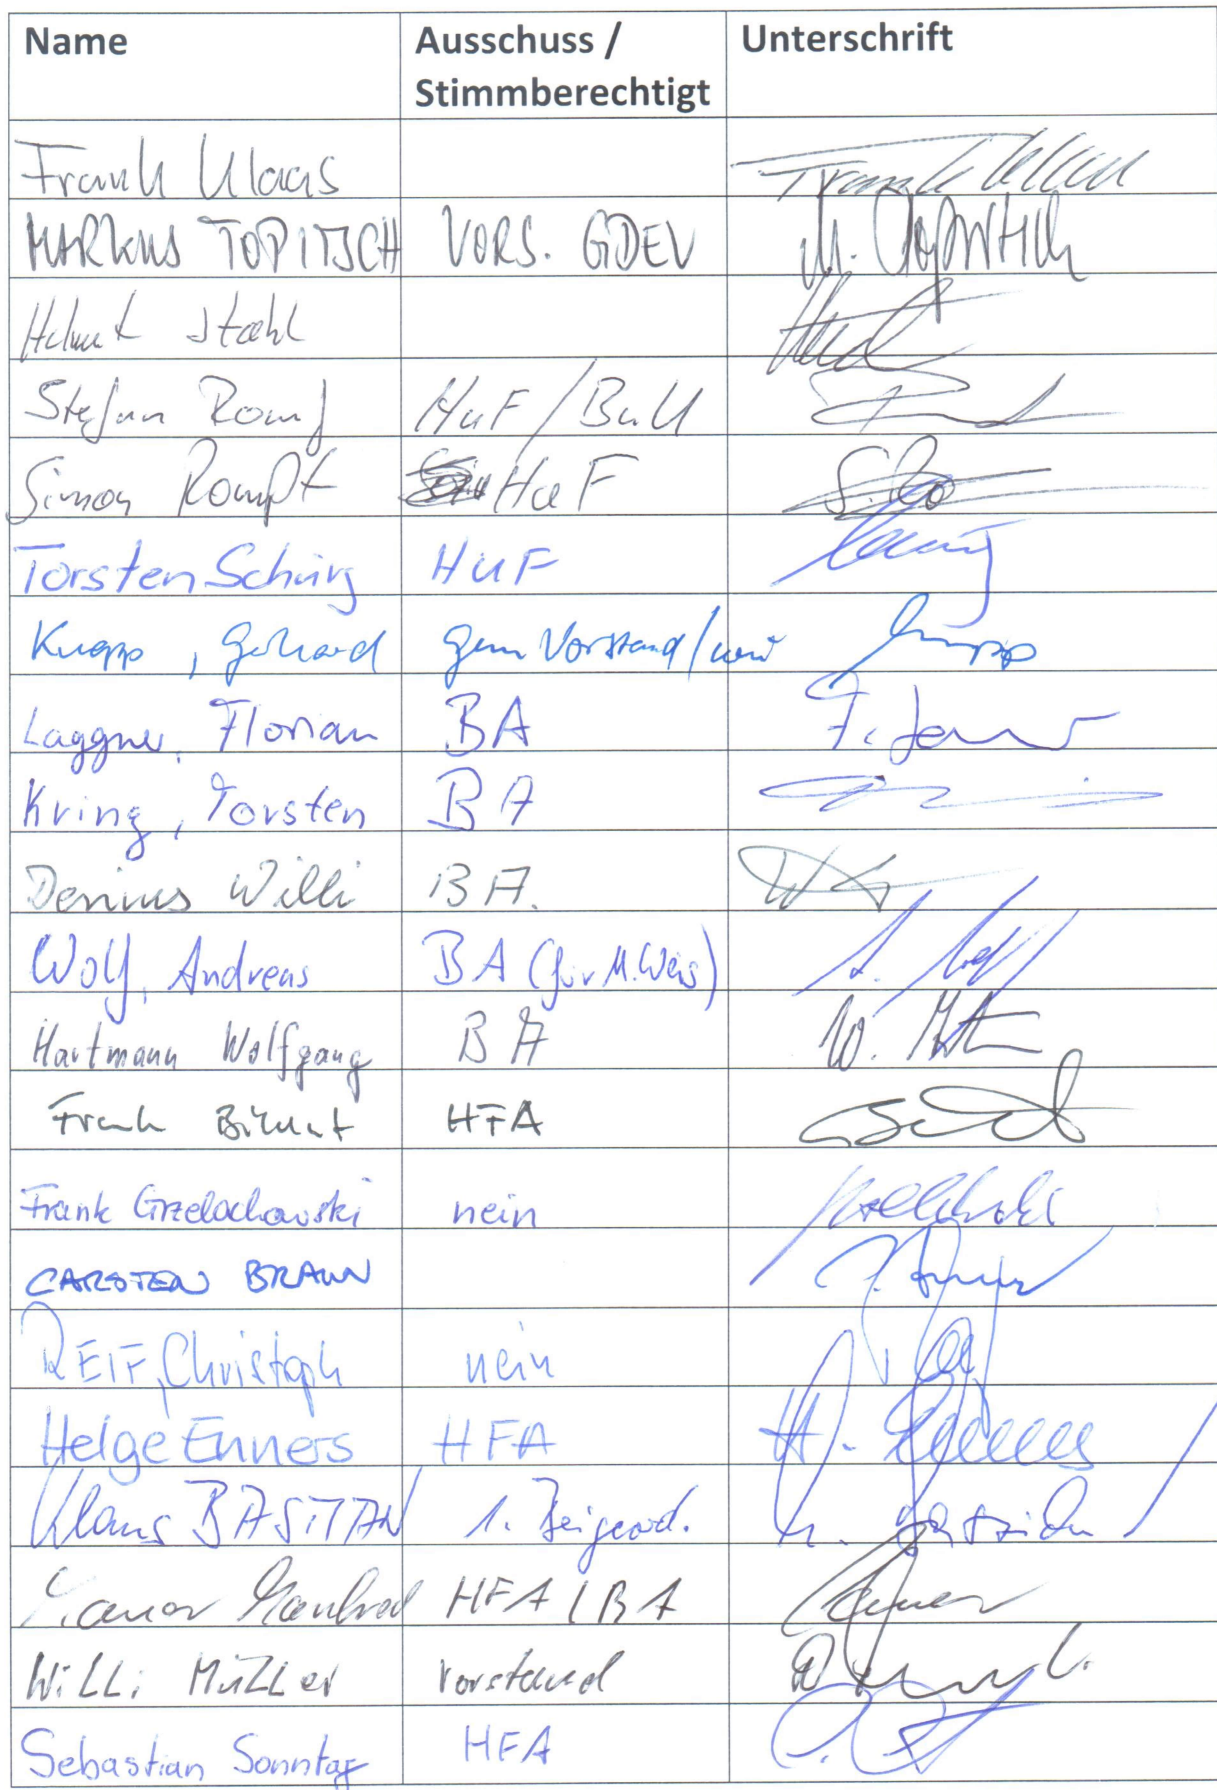 Name Ausschuss / Unterschrift
Stimmberechtigt
Frank Klaas
MARKUS TOPITSCH VORS. GDEV M. Topitsch
Helmut Stahl
Stefan Rompf HuF/BuU
Simon Rompf HuF S. Ro
Torsten Schürg HUF
Knapp, Gerhard Gem Vorstand/nein Knapp
Laggner, Florian BA
Kring, Torsten BA
Willi BA.
Wolf, Andreas BA (für M. Weis) A. Wolf
Hartmann Wolfgang BA
Frank HFA
Frank Grzelachowski nein
CARSTEN BRAUN
REIF, Christoph nein
Helge Enners HFA H. Enners
Klaus BASTIAN 1. Beigeord. K. Bastian
Manfred HFA / BA
Willi Müller Vorstand
Sebastian Sonntag HFA